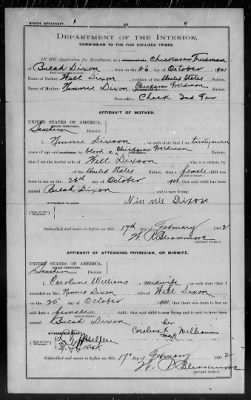 DEPARTMENT OF THE INTERIOR,
COMMISSION TO THE FIVE CIVILIZED TRIBES.
IN RE Application for Enrollment, as a Chickasaw Freedman
Bulah Dixon born on the 26 day of October 1901
Name of Father Will Dixon a citizen of the United States Nation.
Name of Mother Ninnie Dixon a citizen of the Chickasaw Freedman Nation.
Postoffice Cheek Ind Ter
AFFIDAVIT OF MOTHER.
UNITED STATES OF AMERICA,
INDIAN TERRITORY,
Southern District.
I, Ninnie Dixon, on oath state that I am
years of age and a citizen by blood of the Chickasaw Freedman Nation;
that I am the lawful wife of Will Dixon, who is a citizen
of the United States Nation; that a female child was
born to me on 26th day of October 1901, that said child has been
named Bulah Dixon and is now living.
Ninnie Dixon
Subscribed and sworn to before me this 17th day of February 1902
NOTARY PUBLIC.
AFFIDAVIT OF ATTENDING PHYSICIAN, OR MIDWIFE.
UNITED STATES OF AMERICA,
INDIAN TERRITORY,
Southern District.
I, Caroline Williams, a midwife, on oath state that I
attended on Mrs. Ninnie Dixon, wife of Will Dixon
on the 26 day of October 1901, that there was born to her on
said date a female child; that said child is now living and is said to have been
named Bulah Dixon
her
Caroline X Williams
mark
Subscribed and sworn to before me this 17th day of February 1902
NOTARY PUBLIC.